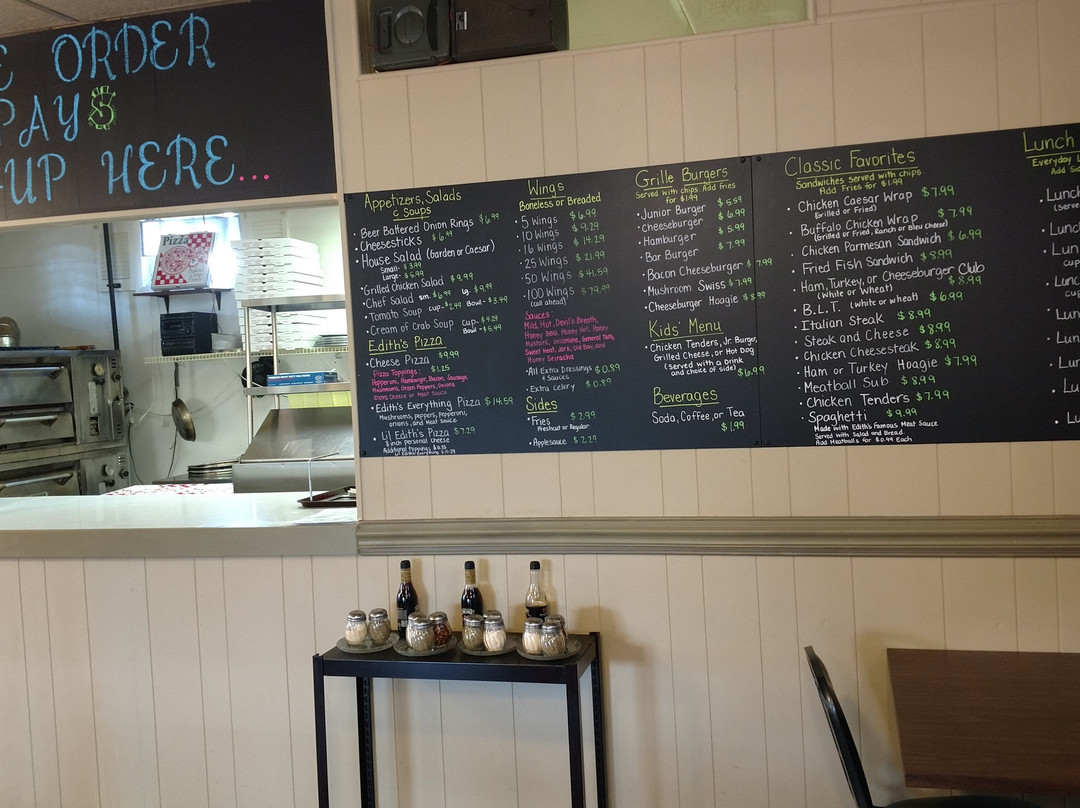 E ORDER
PAY$
UP HERE...
Pizza
Appetizers, Salads
& Soups
• Beer Battered Onion Rings $6.99
• Cheesesticks $6.99
• House Salad (Garden or Caesar)
Small- $3.99
Large- $5.99
• Grilled Chicken Salad $9.99
• Chef Salad sm. $6.99 lg. $9.99
• Tomato Soup cup- $2.49 Bowl- $3.49
• Cream of Crab Soup Cup- $4.29
Bowl- $6.49
Edith's Pizza
• Cheese Pizza $9.99
Pizza Toppings: $1.25
Pepperoni, Hamburger, Bacon, Sausage,
Mushrooms, Green Peppers, Onions
Extra Cheese or Meat Sauce
• Edith's Everything Pizza $14.59
Mushrooms, peppers, pepperoni,
onions, and Meat Sauce
• Lil Edith's Pizza $7.29
8 inch personal cheese
Additional toppings
Wings
Boneless or Breaded
• 5 Wings $6.99
• 10 Wings $9.29
• 16 Wings $14.29
• 25 Wings $21.99
• 50 Wings $41.59
• 100 Wings $79.09
(call ahead)
Sauces:
Mild, Hot, Devil's Breath,
Honey BBQ, Honey Hot, Honey
Mustard, General Tso's,
Sweet Heat, Jerk, Old Bay, and
Honey Sriracha
• All Extra Dressings $0.89
& Sauces
• Extra Celery $0.89
Sides
• Fries $2.99
Freshcut or Regular
• Applesauce $2.29
Grille Burgers
Served with chips. Add Fries
for $1.99
• Junior Burger $5.59
• Cheeseburger $6.99
• Hamburger $5.99
• Bar Burger $7.99
• Bacon Cheeseburger $7.99
• Mushroom Swiss $7.99
• Cheeseburger Hoagie $8.99
Kids' Menu
• Chicken Tenders, Jr. Burger,
Grilled Cheese, or Hot Dog
(Served with a drink
and choice of side) $6.99
Beverages
Soda, Coffee, or Tea
$1.99
Classic Favorites
Sandwiches served with chips
Add Fries for $1.99
• Chicken Caesar Wrap $7.99
(Grilled or Fried)
• Buffalo Chicken Wrap $7.99
(Grilled or Fried, Ranch or Bleu Cheese)
• Chicken Parmesan Sandwich $6.99
• Fried Fish Sandwich $8.99
• Ham, Turkey, or Cheeseburger Club
(White or Wheat) $8.99
• B.L.T. (white or wheat) $6.99
• Italian Steak $8.99
• Steak and Cheese $8.99
• Chicken Cheesesteak $8.99
• Ham or Turkey Hoagie $7.99
• Meatball Sub $8.99
• Chicken Tenders $7.99
• Spaghetti $9.99
Made with Edith's Famous Meat Sauce
Served with Salad and Bread
Add Meatballs for $0.99 Each
Lunch
Everyday
Add
• Lunch
(Serve
• Lunch
• Lun
cup
• Lunc
cup
• Lun
• Lu
• L